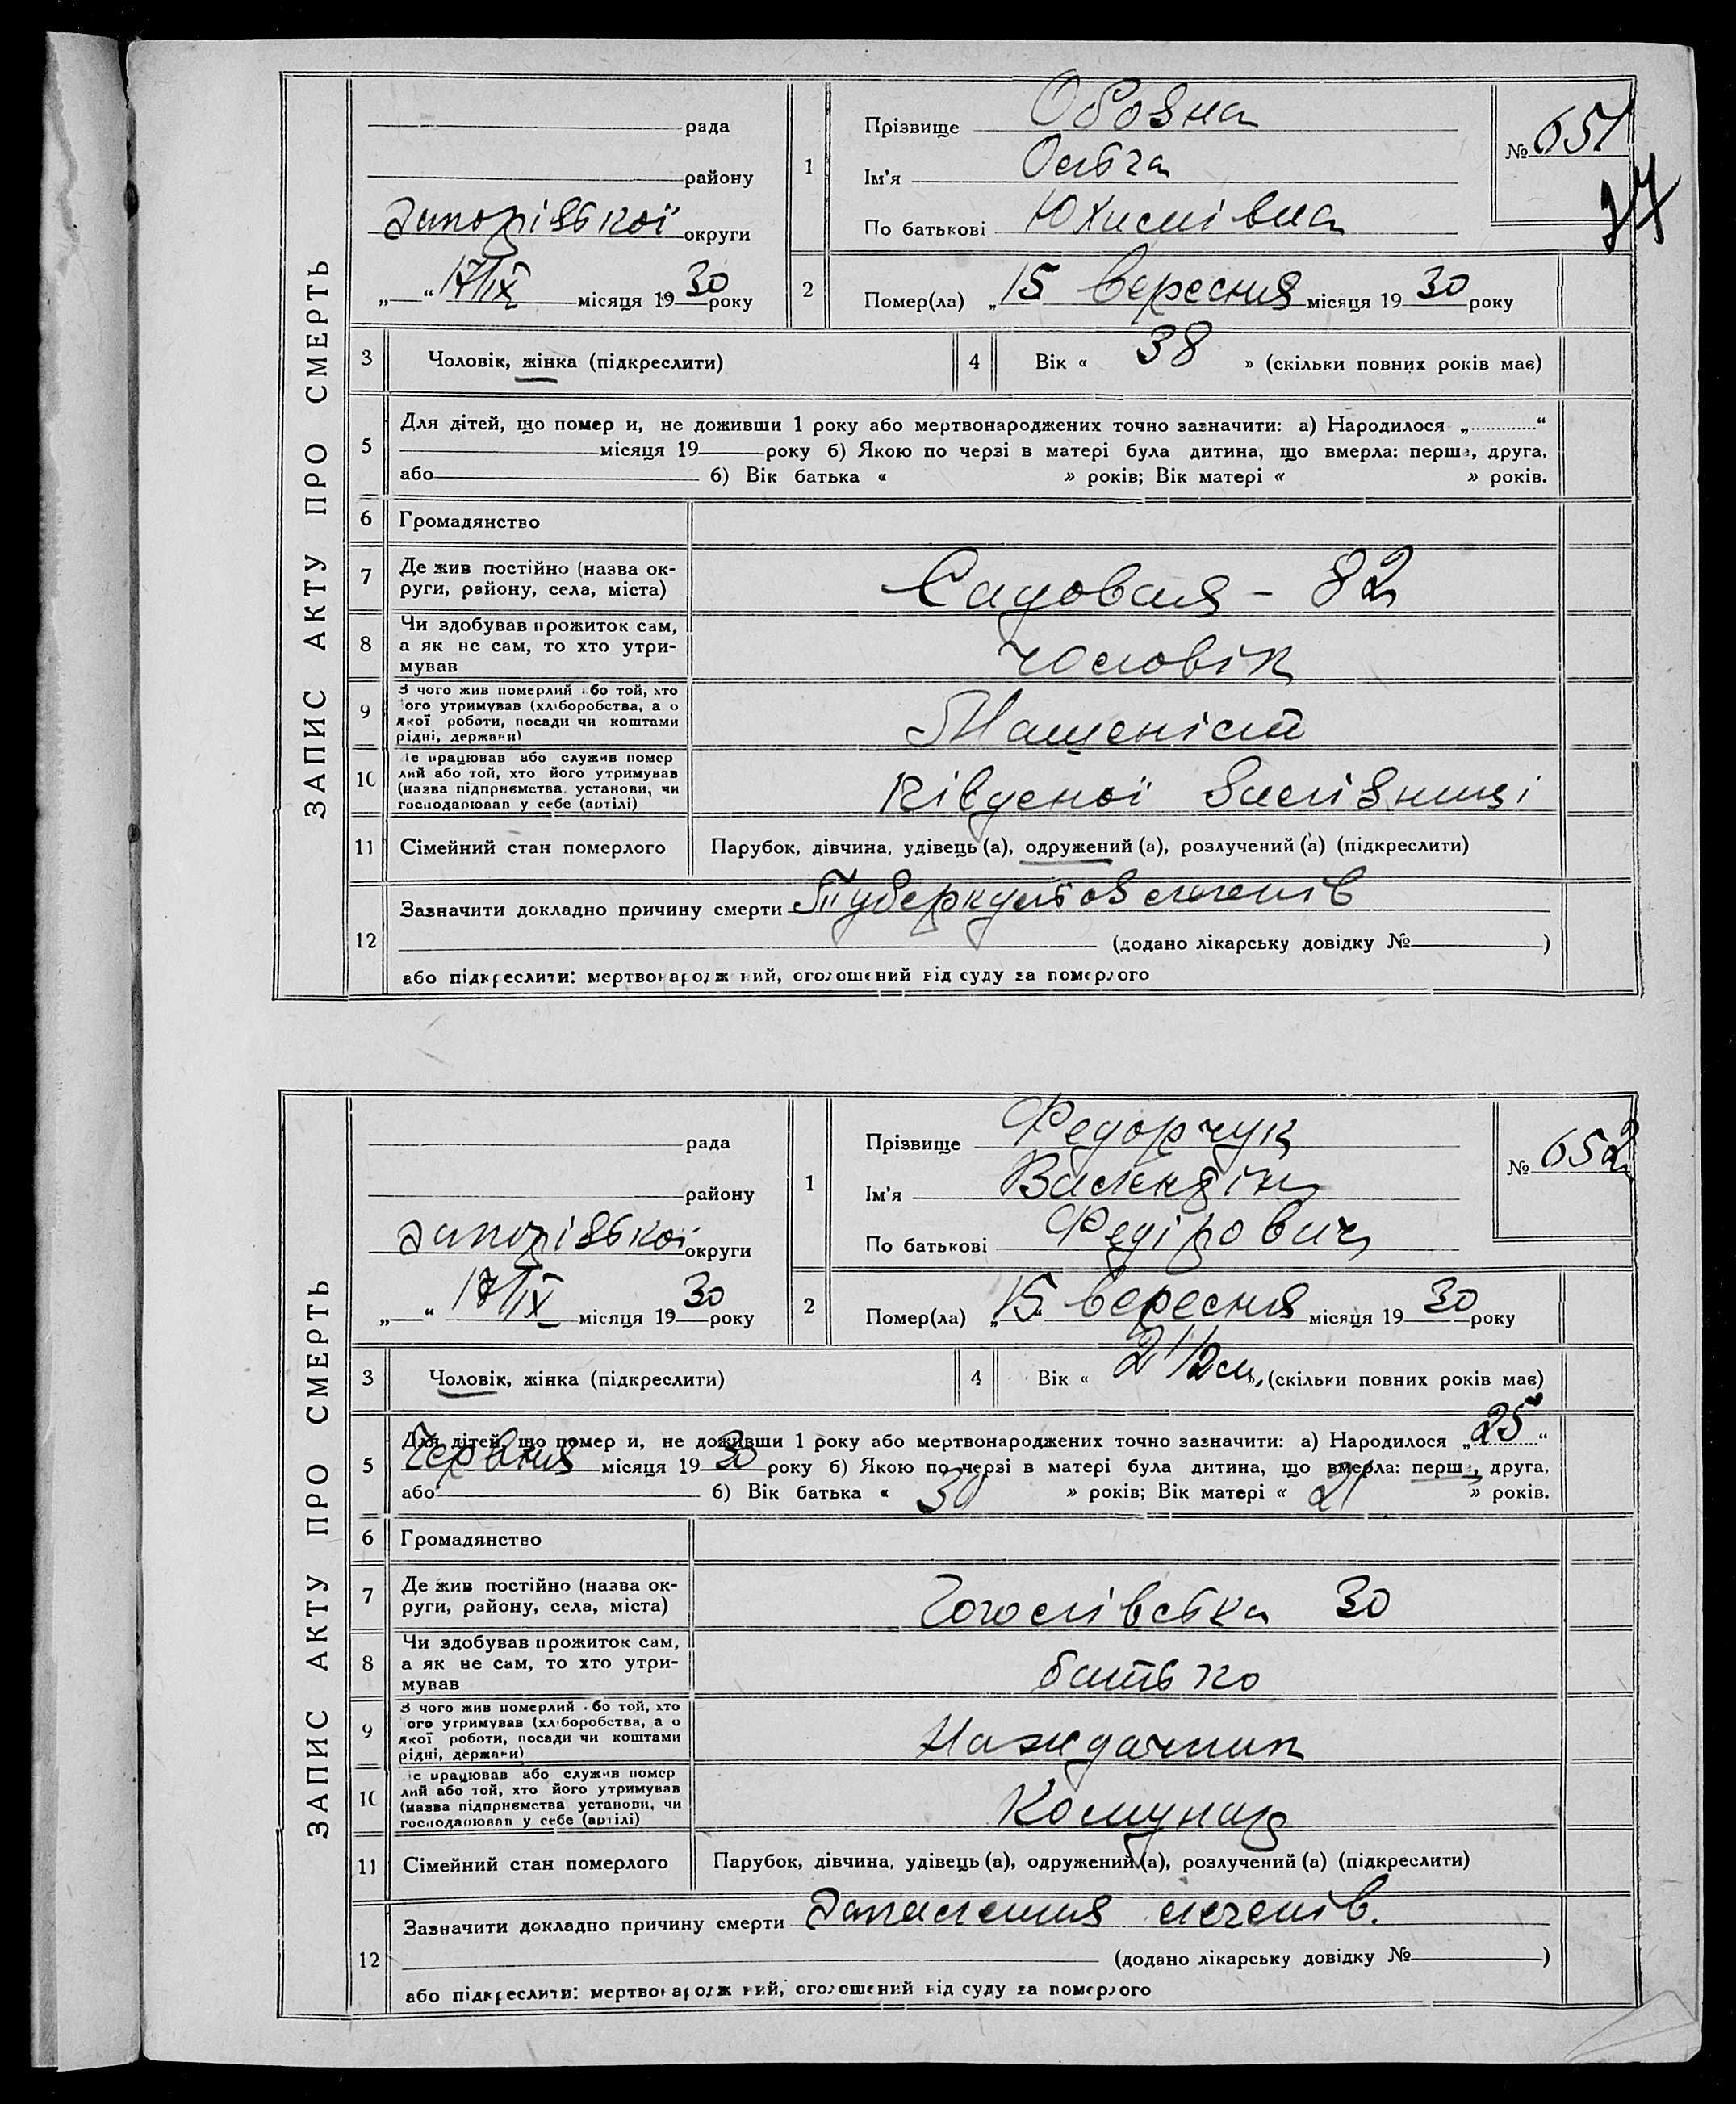 ЗАПИС АКТУ ПРО СМЕРТЬ
рада
району
Запорізької округи
„ “ 17/IX місяця 1930 року
1
Прізвище Обозна
Ім'я Ольга
По батькові Юхимівна
№ 651
2
Помер(ла) „15 вересня місяця 1930 року
3
Чоловік, жінка (підкреслити)
4
Вік « 38 » (скільки повних років має)
5
Для дітей, що помер и, не доживши 1 року або мертвонароджених точно зазначити: а) Народилося „ “
місяця 19 року б) Якою по черзі в матері була дитина, що вмерла: перша, друга,
або б) Вік батька « » років; Вік матері « » років.
6
Громадянство
7
Де жив постійно (назва ок-
руги, району, села, міста)
Садовая - 82
8
Чи здобував прожиток сам,
а як не сам, то хто утри-
мував
чоловік
9
З чого жив померлий або той, хто
ого утримував (хліборобства, а о
якої роботи, посади чи коштами
рідні, держави)
Машиніст
10
Де працював або служив помер
лий або той, хто його утримував
(назва підприємства, установи, чи
господарював у себе (артілі)
Південої Залізниці
11
Сімейний стан померлого
Парубок, дівчина, удівець (а), одружений (а), розлучений (а) (підкреслити)
12
Зазначити докладно причину смерти Туберкульоз легенів
(додано лікарську довідку № )
або підкреслити: мертвонароджений, оголошений від суду за померлого
ЗАПИС АКТУ ПРО СМЕРТЬ
рада
району
Запорізької округи
„ “ 17/IX місяця 1930 року
1
Прізвище Федорчук
Ім'я
По батькові Федірович
№ 652
2
Помер(ла) „15“ вересня місяця 1930 року
3
Чоловік, жінка (підкреслити)
4
Вік « 2 1/2 м, (скільки повних років має)
5
Для дітей, що помер и, не доживши 1 року або мертвонароджених точно зазначити: а) Народилося „25“
Червня місяця 1930 року б) Якою по черзі в матері була дитина, що вмерла: перша, друга,
або б) Вік батька « 30 » років; Вік матері « 21 » років.
6
Громадянство
7
Де жив постійно (назва ок-
руги, району, села, міста)
30
8
Чи здобував прожиток сам,
а як не сам, то хто утри-
мував
батько
9
З чого жив померлий або той, хто
ого утримував (хліборобства, а о
якої роботи, посади чи коштами
рідні, держави)
Наждачник
10
Де працював або служив помер
лий або той, хто його утримував
(назва підприємства установи, чи
господарював у себе (артілі)
Комунар
11
Сімейний стан померлого
Парубок, дівчина, удівець (а), одружений (а), розлучений (а) (підкреслити)
12
Зазначити докладно причину смерти Запалення легенів.
(додано лікарську довідку № )
або підкреслити: мертвонароджений, оголошений від суду за померлого